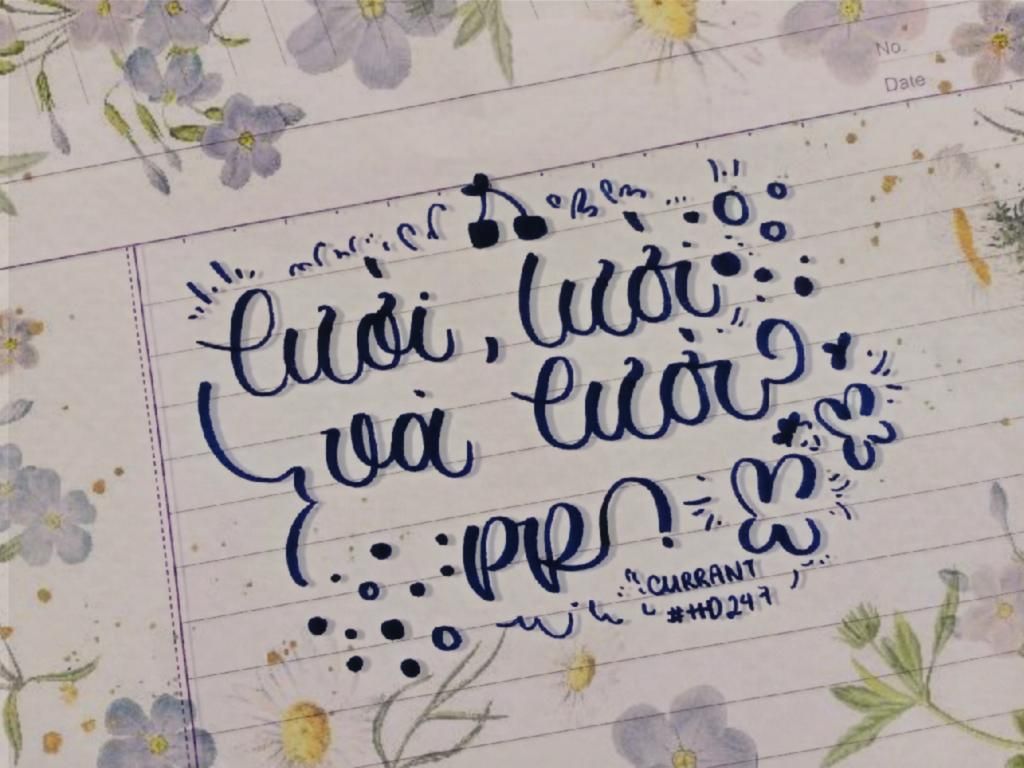 No.
Date
lười, lười
và lười
PR
CURRANT
#HD247